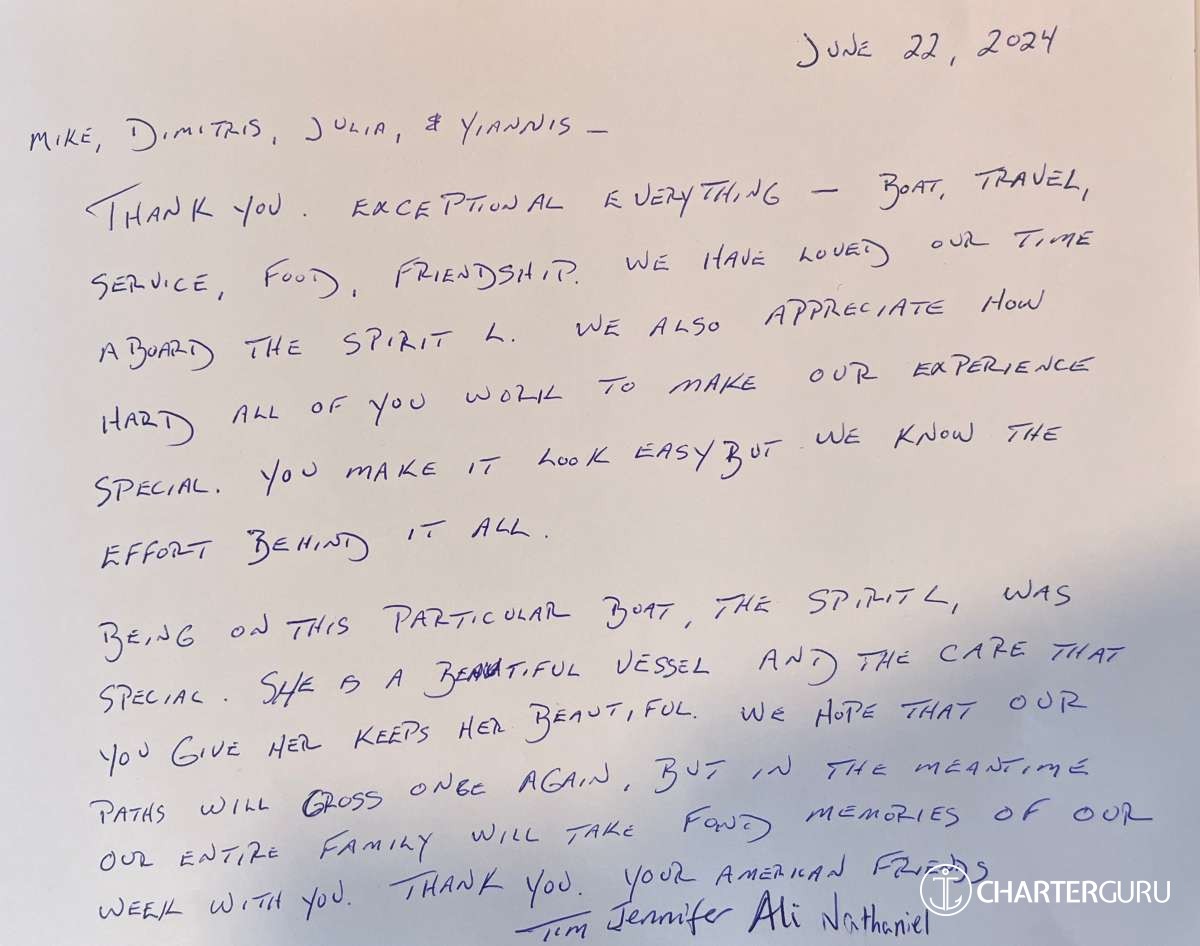 JUNE 22, 2024
MIKE, DIMITRIS, JULIA, & YIANNIS —
THANK YOU. EXCEPTIONAL EVERYTHING — BOAT, TRAVEL,
SERVICE, FOOD, FRIENDSHIP. WE HAVE LOVED OUR TIME
ABOARD THE SPIRIT L. WE ALSO APPRECIATE HOW
HARD ALL OF YOU WORK TO MAKE OUR EXPERIENCE
SPECIAL. YOU MAKE IT LOOK EASY BUT WE KNOW THE
EFFORT BEHIND IT ALL.
BEING ON THIS PARTICULAR BOAT, THE SPIRIT L, WAS
SPECIAL. SHE IS A BEAUTIFUL VESSEL AND THE CARE THAT
YOU GIVE HER KEEPS HER BEAUTIFUL. WE HOPE THAT OUR
PATHS WILL CROSS ONCE AGAIN, BUT IN THE MEANTIME
OUR ENTIRE FAMILY WILL TAKE FOND MEMORIES OF OUR
WEEK WITH YOU. THANK YOU. YOUR AMERICAN FRIENDS
—TIM Jennifer Ali Nathaniel
CHARTERGURU